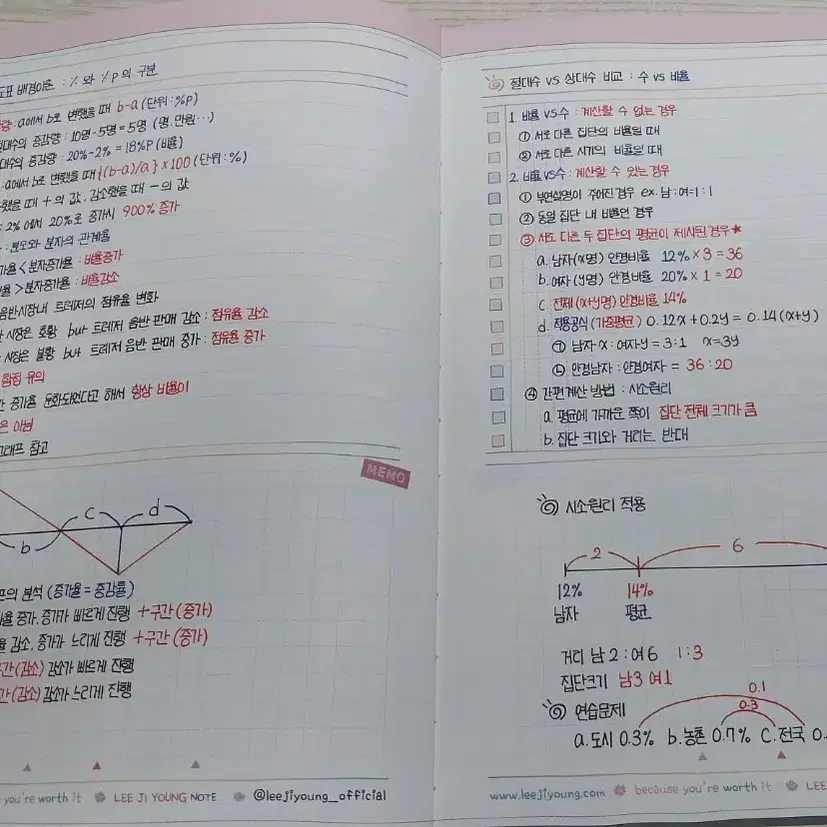 도표 배경이론 : % 와 %P 의 구분
량 : a에서 b로 변했을 때 b-a (단위 : %P)
대수의 증감량 : 10명-5명 = 5명 (명. 만원…)
대수의 증감량 : 20%-2% = 18%P (비율)
: a에서 b로 변했을 때 {(b-a)/a} × 100 (단위 : %)
했을 때 + 의 값, 감소했을 때 - 의 값
: 2% 에서 20%로 증가시 900% 증가
: 분모와 분자의 관계율
가율 < 분자증가율 : 비율증가
율 > 분자증가율 : 비율감소
음반시장내 트레저의 점유율 변화
시장은 호황 but 트레저 음반 판매 감소 : 점유율 감소
시장은 불황 but 트레저 음반 판매 증가 : 점유율 증가
함정 유의
증가율 둔화되었다고 해서 항상 비율이
은 아님
그래프 참고
MEMO
b c d
프의 분석 (증가율 = 증감률)
율 증가, 증가가 빠르게 진행 +구간 (증가)
율 감소, 증가가 느리게 진행 +구간 (증가)
구간 (감소) 감소가 빠르게 진행
간 (감소) 감소가 느리게 진행
you're worth it LEE JI YOUNG NOTE @leejiyoung_official
절대수 VS 상대수 비교 : 수 vs 비율
1. 비율 VS 수 : 계산할 수 없는 경우
① 서로 다른 집단의 비율일 때
② 서로 다른 시기의 비율일 때
2. 비율 VS 수 : 계산할 수 있는 경우
① 부연설명이 주어진 경우 ex. 남 : 여=1 : 1
② 동일 집단 내 비율인 경우
③ 서로 다른 두 집단의 평균이 제시된 경우★
a. 남자(x명) 안경비율 12% × 3 = 36
b. 여자(y명) 안경비율 20% × 1 = 20
c. 전체(x+y명) 안경비율 14%
d. 적용공식 (가중평균) 0.12x + 0.2y = 0.14(x+y)
㉠ 남자x : 여자y = 3:1 x=3y
㉡ 안경남자 : 안경여자 = 36 : 20
④ 간편계산 방법 : 시소원리
a. 평균에 가까운 쪽이 집단 전체 크기가 큼
b. 집단 크기와 거리는 반대
시소원리 적용
2 6
12% 14%
남자 평균
거리 남 2 : 여 6 1 : 3
집단크기 남3 여1
연습문제
0.1
0.3
a. 도시 0.3% b. 농촌 0.7% C. 전국 0.
www.leejiyoung.com because you're worth it LEE